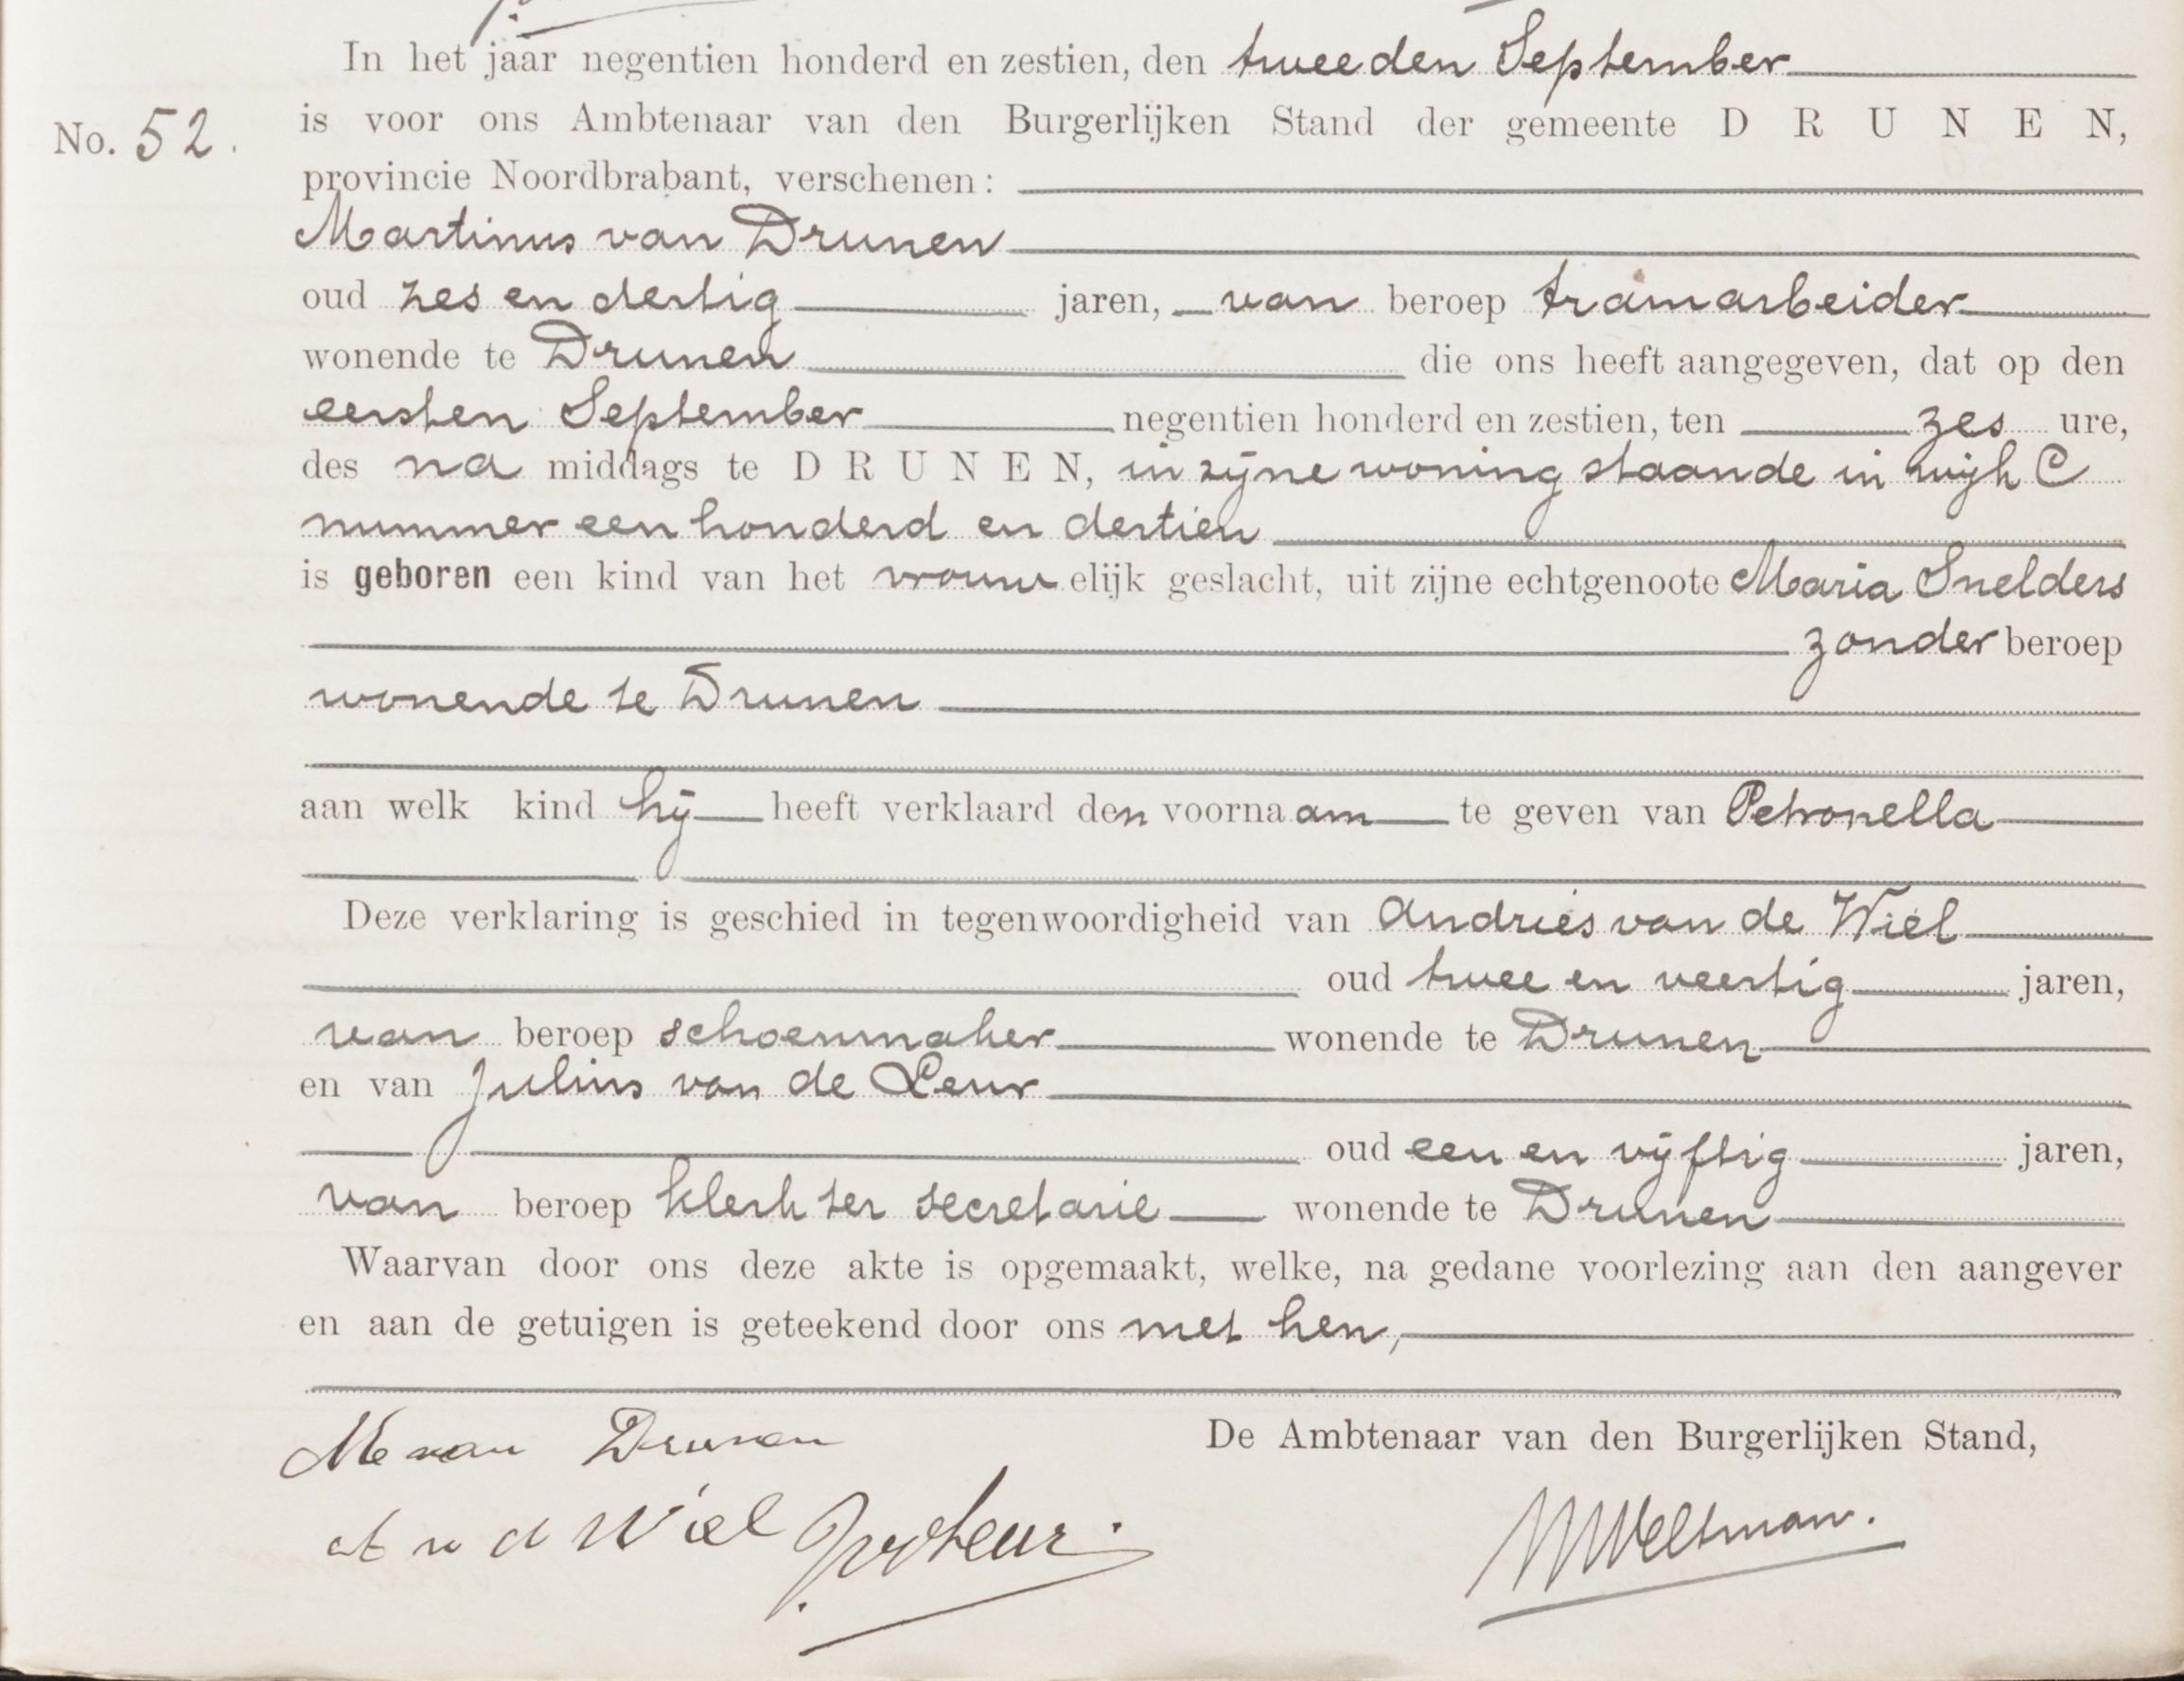 In het jaar negentien honderd en zestien, den tweeden September
No. 52.
is voor ons Ambtenaar van den Burgerlijken Stand der gemeente D R U N E N,
provincie Noordbrabant, verschenen:
Martinus van Drunen
oud zes en dertig jaren, van beroep tramarbeider
wonende te Drunen die ons heeft aangegeven, dat op den
eersten September negentien honderd en zestien, ten zes ure,
des na middags te D R U N E N, in zijne woning staande in wijk C
nummer een honderd en dertien
is geboren een kind van het vrouwelijk geslacht, uit zijne echtgenoote Maria Snelders
zonder beroep
wonende te Drunen
aan welk kind hij heeft verklaard den voornaam te geven van Petronella
Deze verklaring is geschied in tegenwoordigheid van Andries van de Wiel
oud twee en veertig jaren,
van beroep schoenmaker wonende te Drunen
en van Julius van de Leur
oud een en vijftig jaren,
van beroep klerk ter secretarie wonende te Drunen
Waarvan door ons deze akte is opgemaakt, welke, na gedane voorlezing aan den aangever
en aan de getuigen is geteekend door ons met hen,
De Ambtenaar van den Burgerlijken Stand,
M van Drunen
A v d Wiel